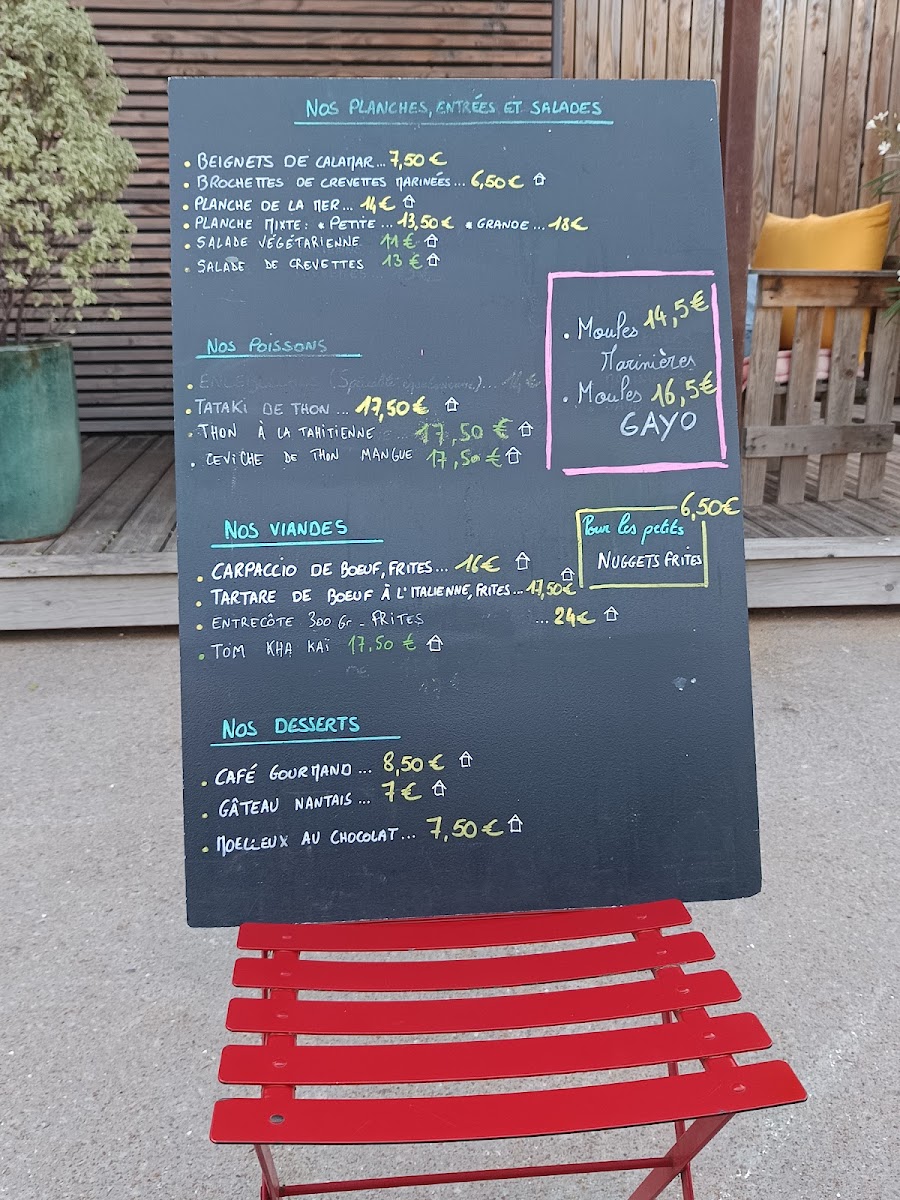 NOS PLANCHES, ENTRÉES ET SALADES
• BEIGNETS DE CALAMAR... 7,50€
• BROCHETTES DE CREVETTES MARINÉES... 6,50€
• PLANCHE DE LA MER... 14€
• PLANCHE MIXTE: * PETITE... 13,50€ * GRANDE... 18€
• SALADE VÉGÉTARIENNE 11€
• SALADE DE CREVETTES 13€
NOS POISSONS
• TATAKI DE THON... 17,50€
• THON À LA TAHITIENNE 17,50€
• CEVICHE DE THON MANGUE 17,50€
• Moules 14,5€
Marinières
• Moules 16,5€
GAYO
NOS VIANDES
• CARPACCIO DE BOEUF, FRITES... 16€
• TARTARE DE BOEUF À L'ITALIENNE, FRITES... 17,50€
• ENTRECÔTE 300 Gr - FRITES ... 24€
• TOM KHA KAÏ 17,50€
6,50€
Pour les petits
NUGGETS FRITES
NOS DESSERTS
• CAFÉ GOURMAND... 8,50€
• GÂTEAU NANTAIS... 7€
• MOELLEUX AU CHOCOLAT... 7,50€